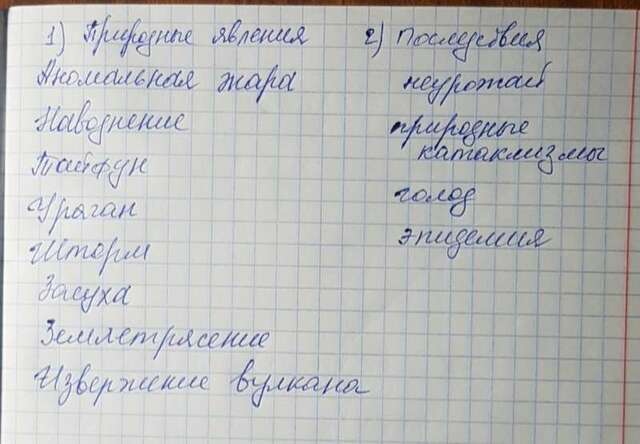 1) Природные явления
Аномальная жара
Наводнение
Тайфун
Ураган
Шторм
Засуха
Землетрясение
Извержение вулкана
2) Последствия
неурожай
природные
катаклизмы
голод
эпидемия